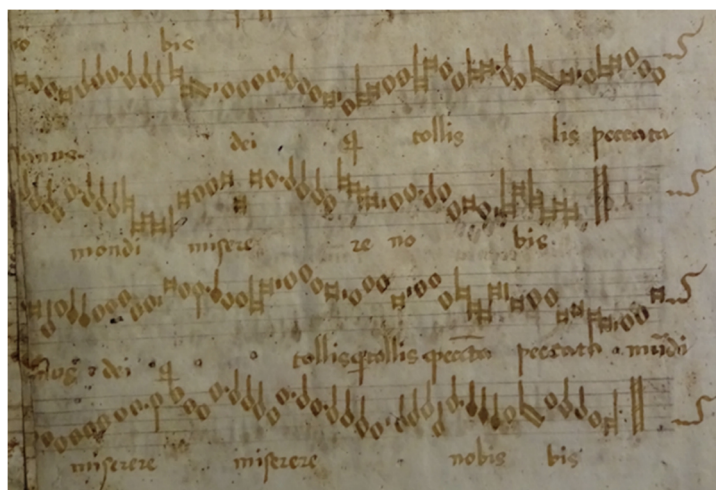 bis
dei q tollis lis peccata
mondi misere re no bis
nus dei q tollis q tollis peccta peccata mudi
miserere miserere nobis bis